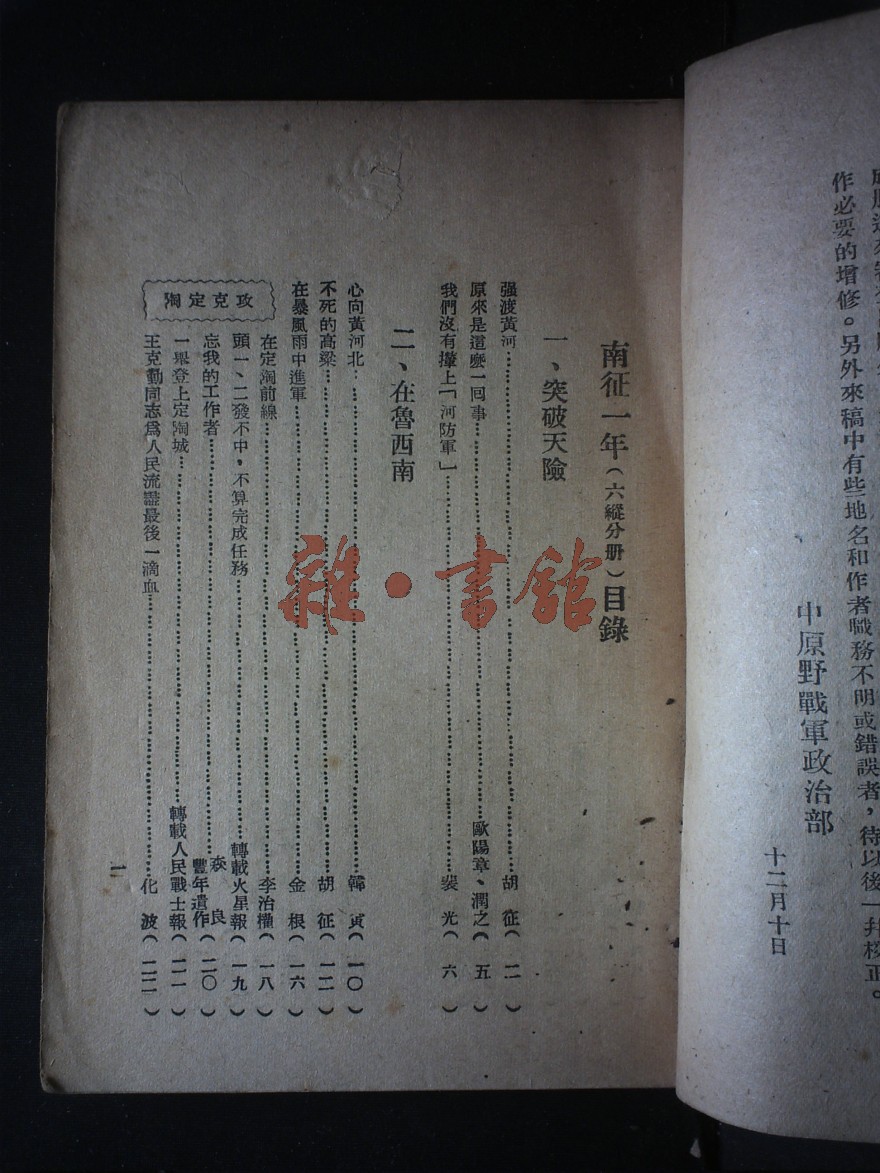 作必要的增修。另外來稿中有些地名和作者職務不明或錯誤者，待以後一并校正。
中原野戰軍政治部
十二月十日
南征一年（六縱分册）目錄
一、突破天險
强渡黃河……胡征（二）
原來是這麽一回事……歐陽章、潤之（五）
我們沒有攆上「河防軍」……裴光（六）
二、在魯西南
心向黃河北……韓寅（一〇）
不死的高粱……胡征（一二）
在暴風雨中進軍……金根（一六）
攻克定陶
在定陶前線……李治權（一八）
頭一、二發不中，不算完成任務……轉載火星報（一九）
忘我的工作者……森良 豐年遺作（二〇）
一舉登上定陶城……轉載人民戰士報（二一）
王克勤同志爲人民流盡最後一滴血……化波（二二）
一
雜·書館